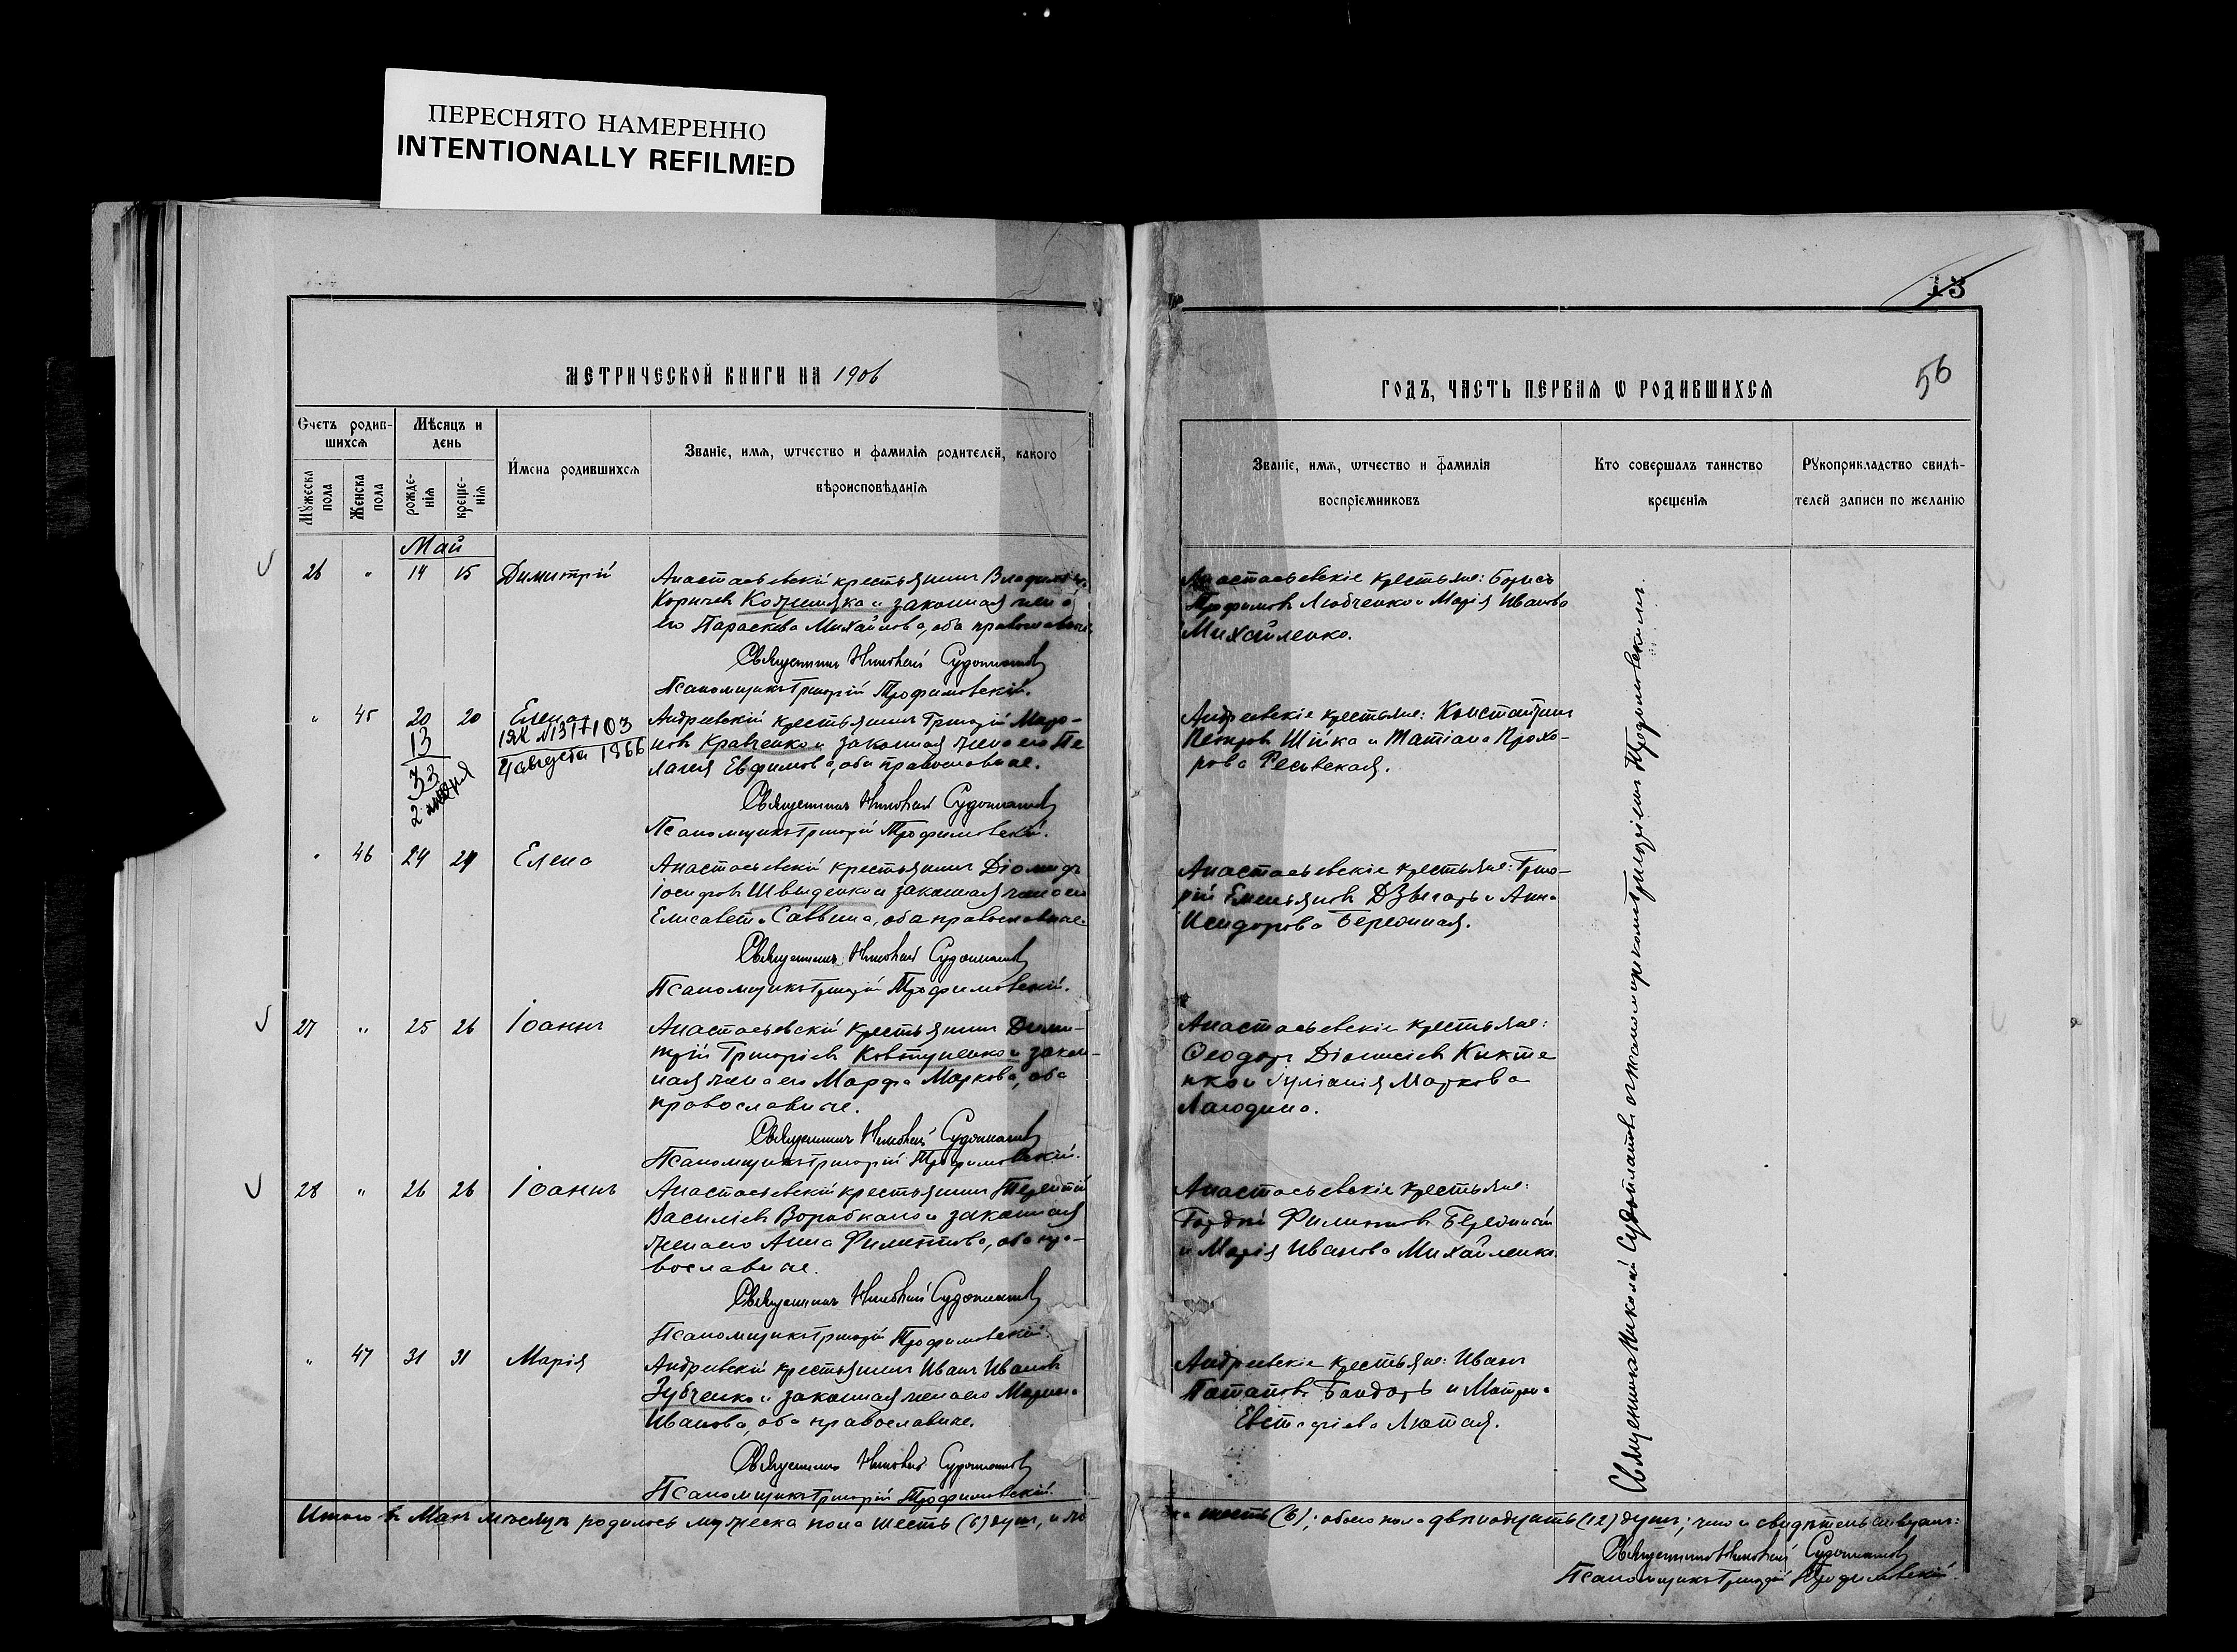 ПЕРЕСНЯТО НАМЕРЕННО
INTENTIONALLY REFILMED
МЕТРИЧЕСКОЙ КНИГИ НА 1906
Счетъ родив-
шихся
Мѣсяцъ и
день
Мужеска
пола
Женска
пола
рожде-
нія
креще-
нія
Имена родившихся
Званіе, имя, ѡтчество и фамилія родителей, какого
вѣроисповѣданія
Май
26 " 14 15 Димитрій
Анастасьевскій крестьянинъ
и законная жена
его Параскева Михайлова, оба православные.
Священникъ Николай Судоплатовъ
Псаломщикъ Григорій Трофимовскій.
" 45 20 20 Елена
13
33
2
1ЯК №1317103
4 августа 1966
Андреевскій крестьянинъ Григорій Миро-
новъ Кравченко и законная жена его Пе
лагія Евфимова, оба православные.
Священникъ Николай Судоплатовъ
Псаломщикъ Григорій Трофимовскій.
" 46 24 24 Елена
Анастасьевскій крестьянинъ Діомидъ
Іосифовъ Швыденко и законная жена его
Елисавета Саввина, оба православные.
Священникъ Николай Судоплатовъ
Псаломщикъ Григорій Трофимовскій.
27 " 25 26 Іоаннъ
Анастасьевскій крестьянинъ Дими-
трій Григоріевъ Ковтуненко и закон-
ная жена его Марфа Маркова, оба
православные.
Священникъ Николай Судоплатовъ
Псаломщикъ Григорій Трофимовскій.
28 " 26 26 Іоаннъ
Анастасьевскій крестьянинъ Терентій
Василіевъ и законная
жена его Анна Филиппова, оба пра-
вославные.
Священникъ Николай Судоплатовъ
Псаломщикъ Григорій Трофимовскій.
" 47 31 31 Марія
Андреевскій крестьянинъ Иванъ Ивановъ
Зубченко и законная жена его Марина
Иванова, оба православные.
Священникъ Николай Судоплатовъ
Псаломщикъ Григорій Трофимовскій.
Итого въ Маѣ мѣсяцѣ родилось мужеска пола шесть (6) душъ,
13
56
ГОДЪ, ЧАСТЬ ПЕРВАЯ Ѡ РОДИВШИХСЯ
Званіе, имя, ѡтчество и фамилія
воспріемниковъ
Кто совершалъ таинство
крещенія
Рукоприкладство свидѣ-
телей записи по желанію
Анастасьевскіе крестьяне: Борисъ
Трофимовъ Любченко и Марія Иванова
Михайленко.
Андреевскіе крестьяне: Константинъ
Петровъ Шійка и Татіана Прохо-
рова
Анастасьевскіе крестьяне: Григо-
рій Емельяновъ Дзыгарь и Анна
Исидорова Бережная.
Анастасьевскіе крестьяне:
Ѳеодоръ Діонисіевъ Кикте
нко и Іуліанія Маркова
Лагодина.
Анастасьевскіе крестьяне:
Гордій Филипповъ Бережный
и Марія Иванова Михайленко.
Андреевскіе крестьяне: Иванъ
Потаповъ Бондарь и Матрона
Евстафіева Лютая.
Священникъ Николай Судоплатовъ съ псаломщикомъ Григоріемъ Трофимовскимъ.
шесть (6); обоего пола двѣнадцать (12) душъ; что и свидѣтельствуемъ:
Священникъ Николай Судоплатовъ
Псаломщикъ Григорій Трофимовскій